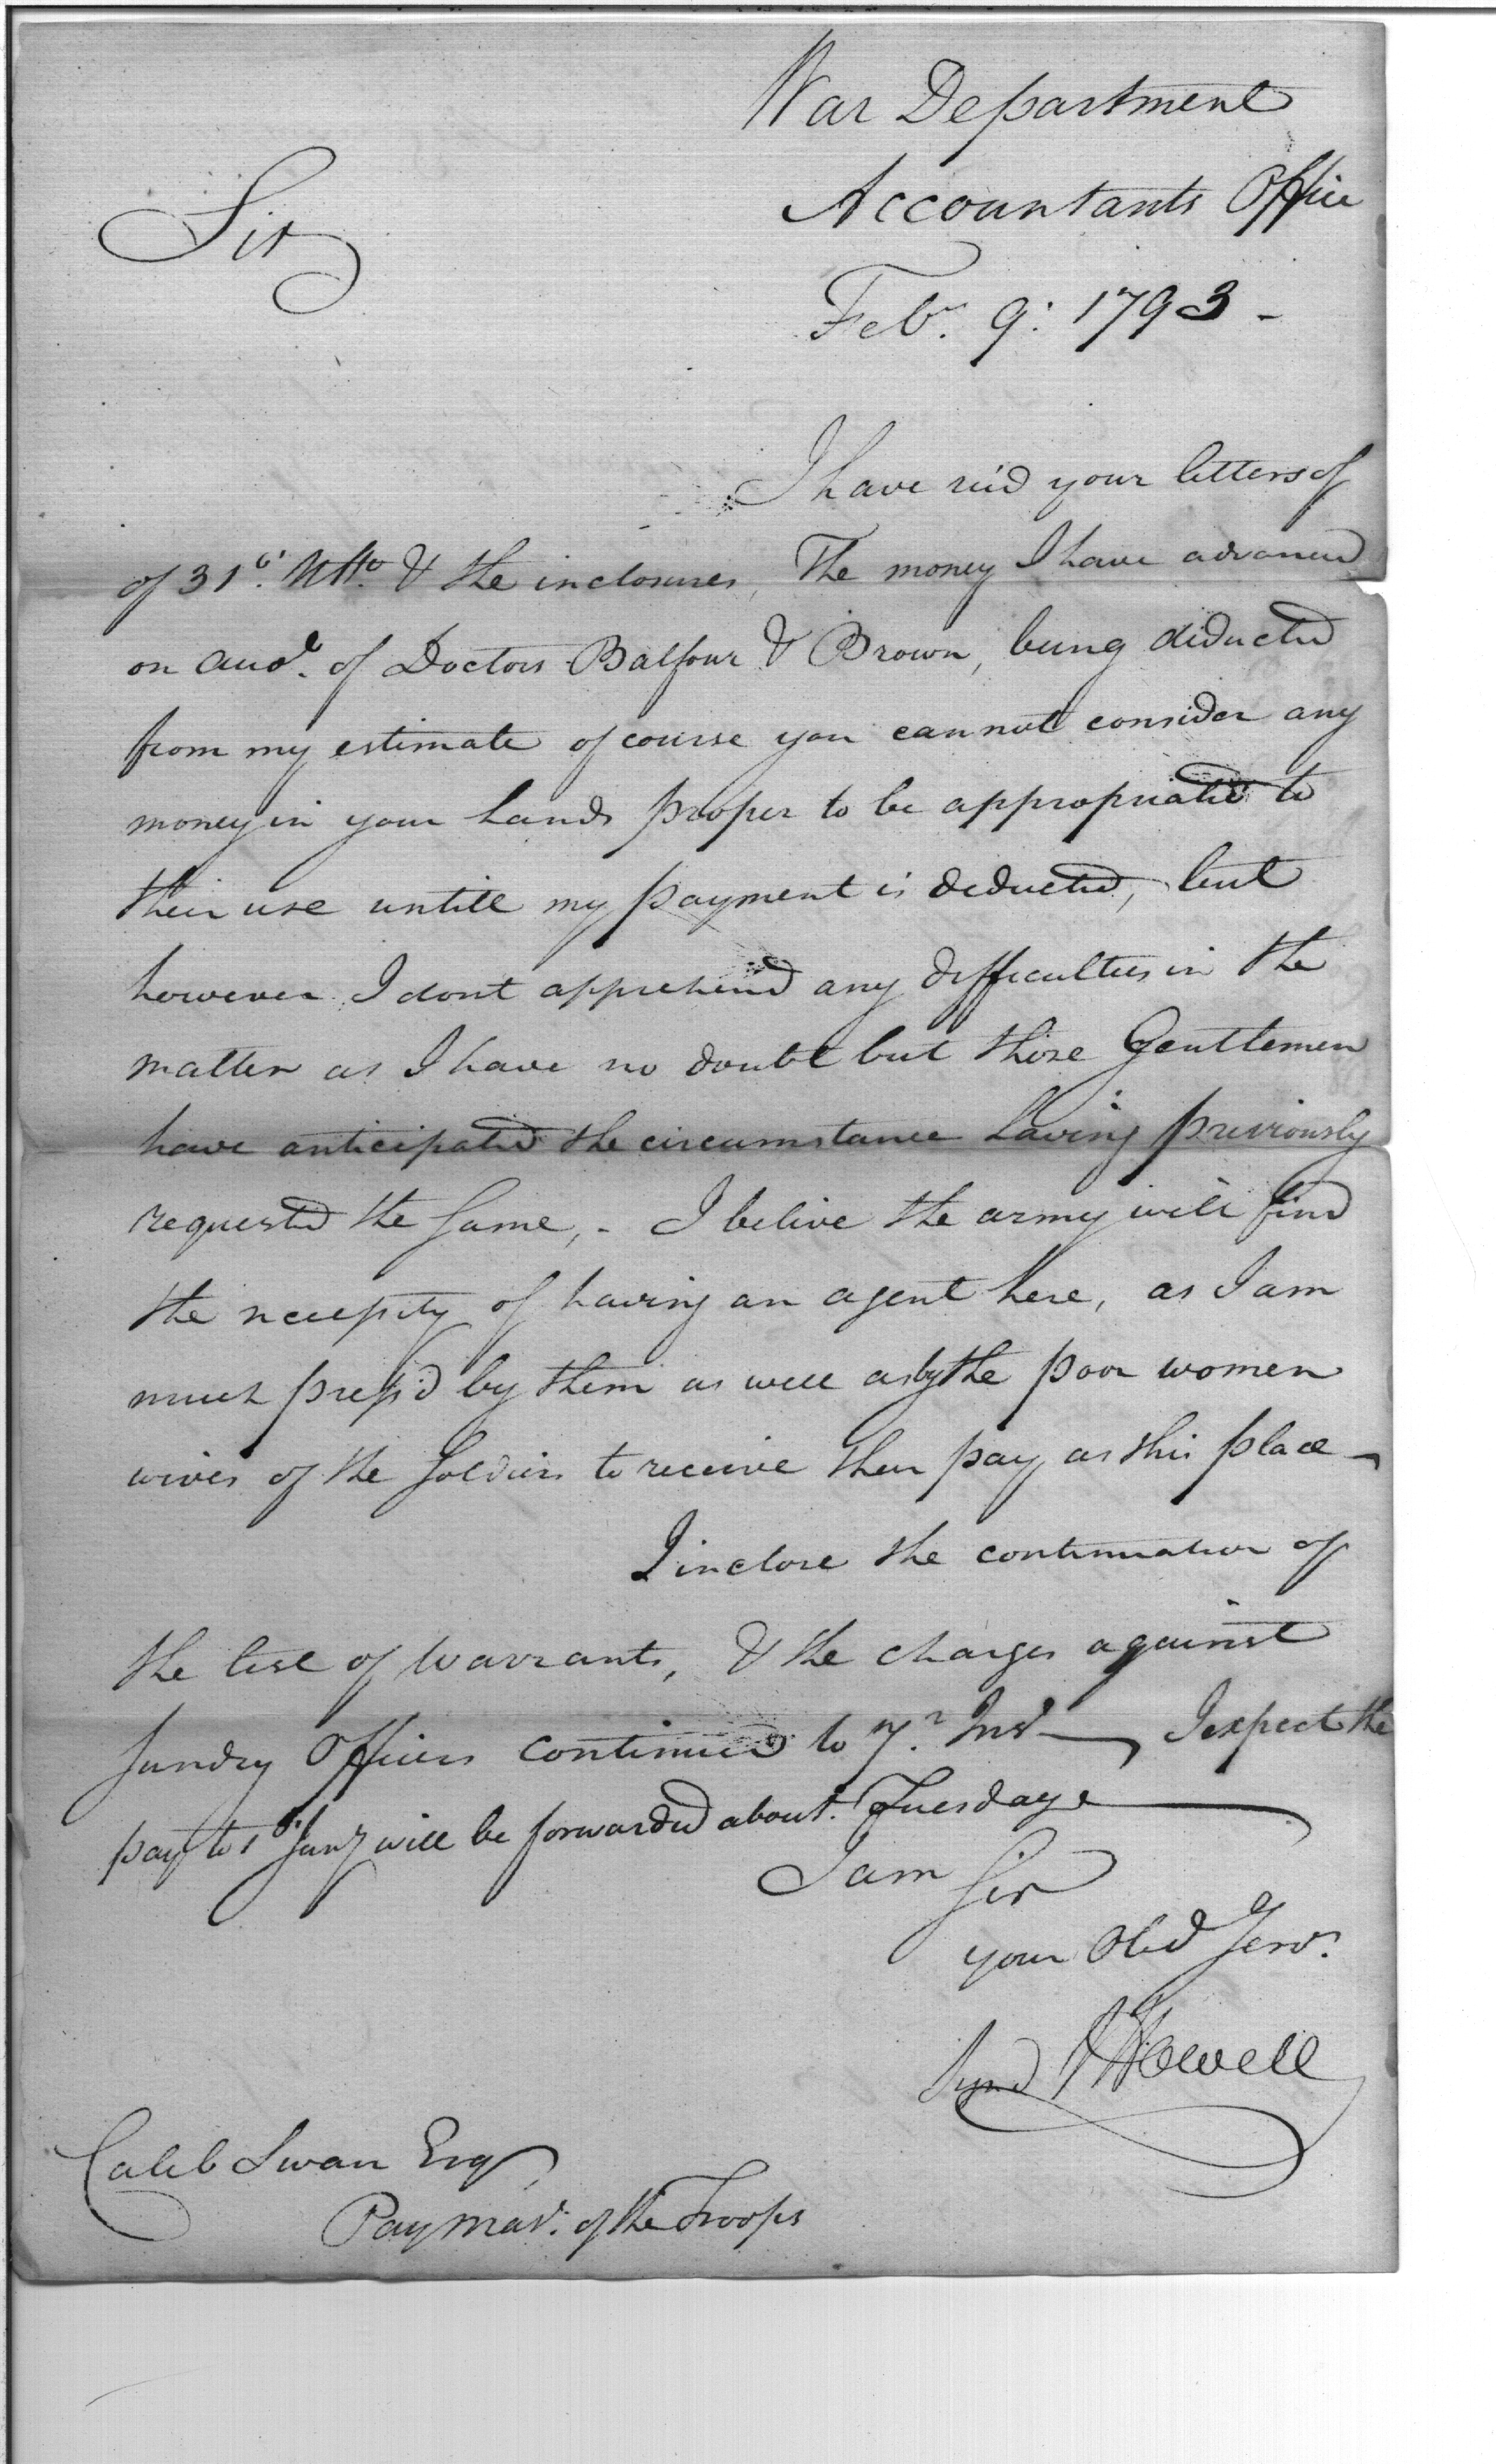 War Department
Accountants Office
Sir
Feb.r 9: 1793 -
I have rec'd your letters of
of 31st. Ulto. & the inclosures, The money I have advanced
on accot. of Doctors Balfour & Brown, being deducted
from my estimate of course you cannot consider any
money in your hands proper to be appropriated to
their use untill my payment is deducted, but
however I dont apprehend any difficulties in the
matter as I have no doubt but those Gentlemen
have anticipated the circumstance having previously
requested the same, - I belive the army will find
the necessity of having an agent here, as I am
much press'd by them as well as by the poor women
wives of the soldiers to receive their pay as this place -
I inclose the continuation of
the list of warrants, & the charges against
sundry Officers continued to 7. Inst — I expect the
pay to 1st Jany will be forwarded about Tuesday
I am Sir
your Obed Serv.
Sign'd J Howell
Caleb Swan Esqr
Paymasr. of the Troops